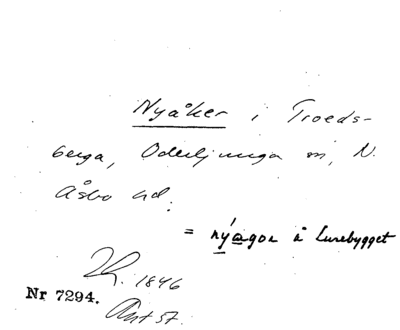 Nyåker i Troeds-
berga, Oderljunga sn, N.
Åsbo hd.
= nýagor å Lurebygget
1846
Nr 7294.